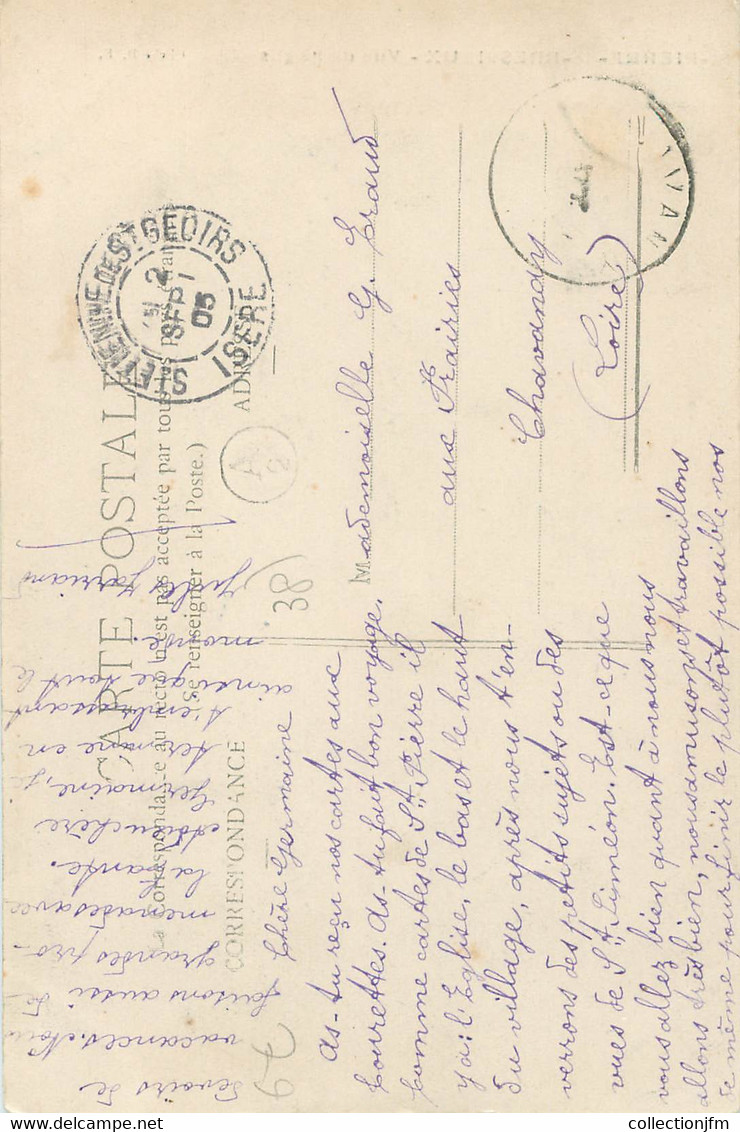 CARTE POSTALE
La Correspondance au recto n'est pas acceptée par tous les pays
(Se renseigner à la Poste.)
CORRESPONDANCE
ADRESSE
ST ETIENNE DE ST GEOIRS
ISERE
2
SEPT
05
A
2
38
6€
Mademoiselle G. Eraud
aux Prairies
Chavanay
(Loire)
Chère Germaine
As-tu reçu nos cartes aux
tourettes. As-tu fait bon voyage.
Comme cartes de St. Pierre il
y a: l'Eglise, le bas et le haut
du village, après nous t'en-
verrons des petits sujets ou des
vues de St. Siméon. Est-ce que
vous allez bien quant à nous nous
allons très bien, nous amusons et travaillons
de même pour finir le plutôt possible nos
devoirs de
vacances. Nous
faisons aussi de
grandes pro-
menades avec
la tante.
Germaine, je
termine en
t'embrassant
ainsi que tout le
monde
collectionjfm